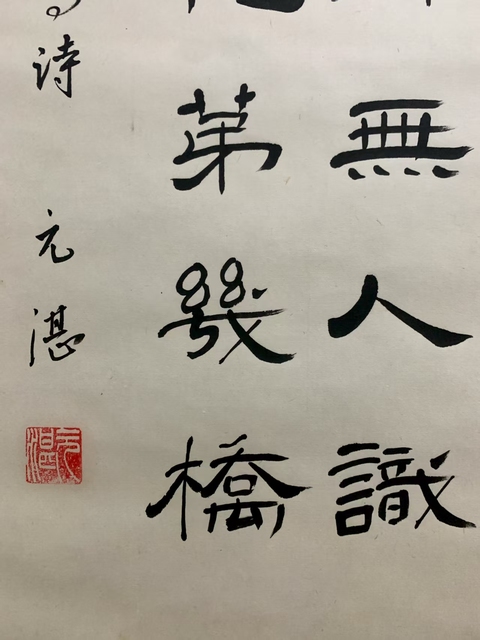 無人識
第幾橋
詩 元湛